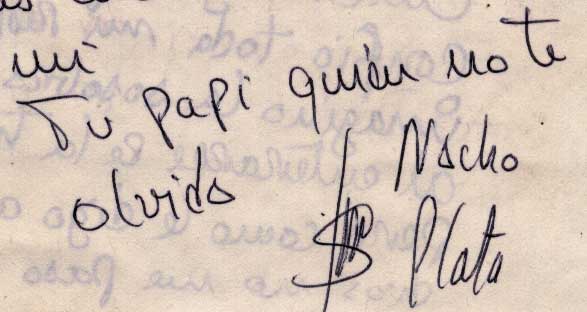 mi
Tu papi quién no te
olvida
Nacho
Plata